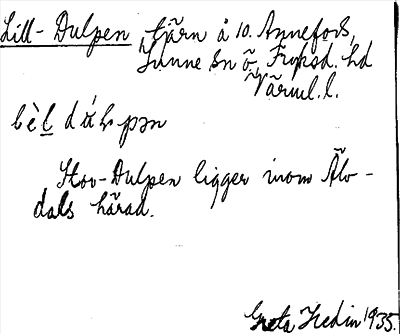 Lill-Dulpen tärn å 10. Annefors,
Sunne sn ö, Fryksd. hd
Värml. l.
Stor-Dulpen ligger inom Älv-
dals härad.
Greta Hedin 1935.